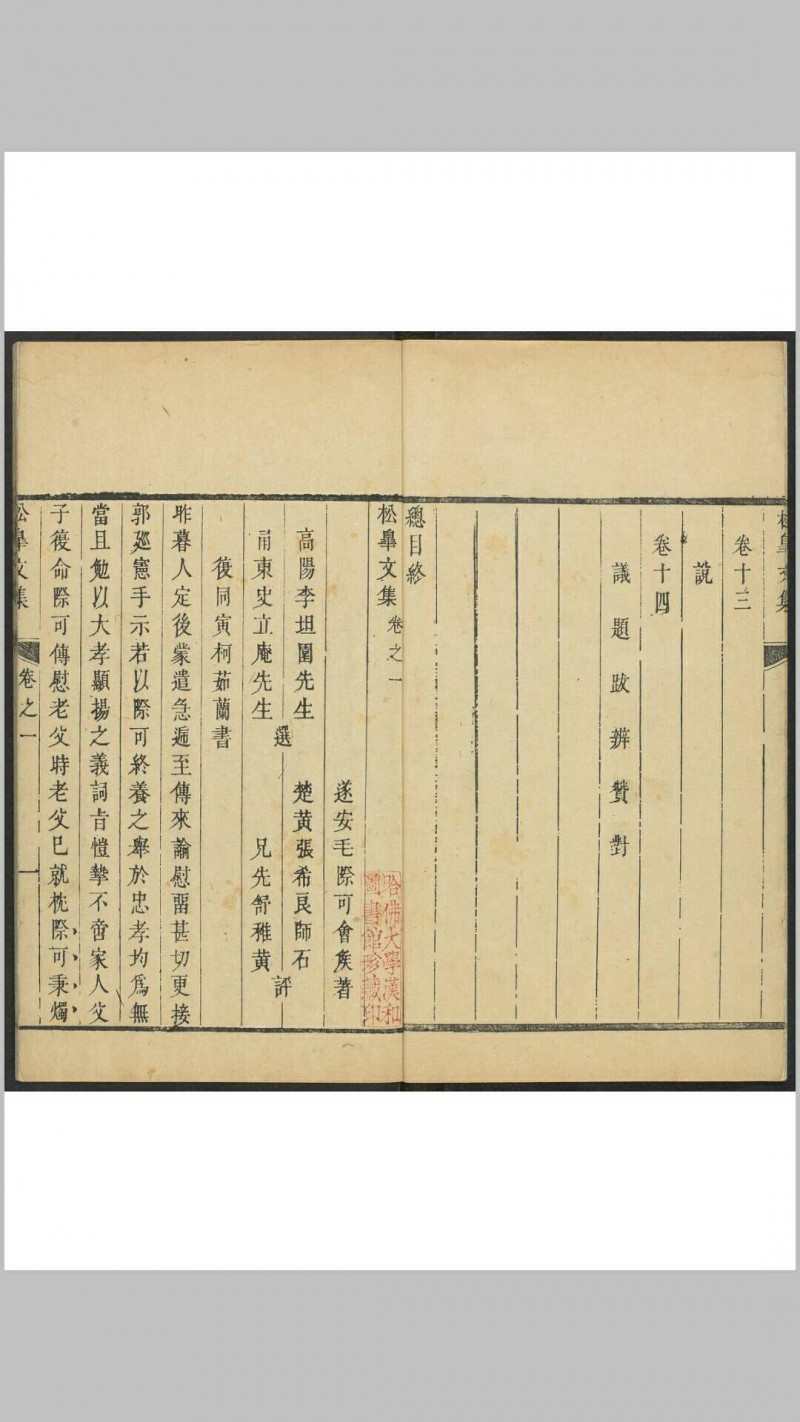 松皐文集
卷十三
說
卷十四
議 題 跋 辨 贊 對
總目終
松皐文集 卷之一
遂安毛際可會矦著
高陽李坦園先生
楚黃張希良師石
選
評
甬東史立庵先生
兄先舒稚黃
復同寅柯茹蘭書
昨暮人定後蒙遣急遞至傳來諭慰畱甚切更接
郭廵憲手示若以際可終養之舉於忠孝均爲無
當且勉以大孝顯揚之義詞旨愷摯不啻家人父
子復命際可傳慰老父時老父已就枕際可秉燭
松皐文集
卷之一
一
哈佛大學漢和
圖書館珍藏印